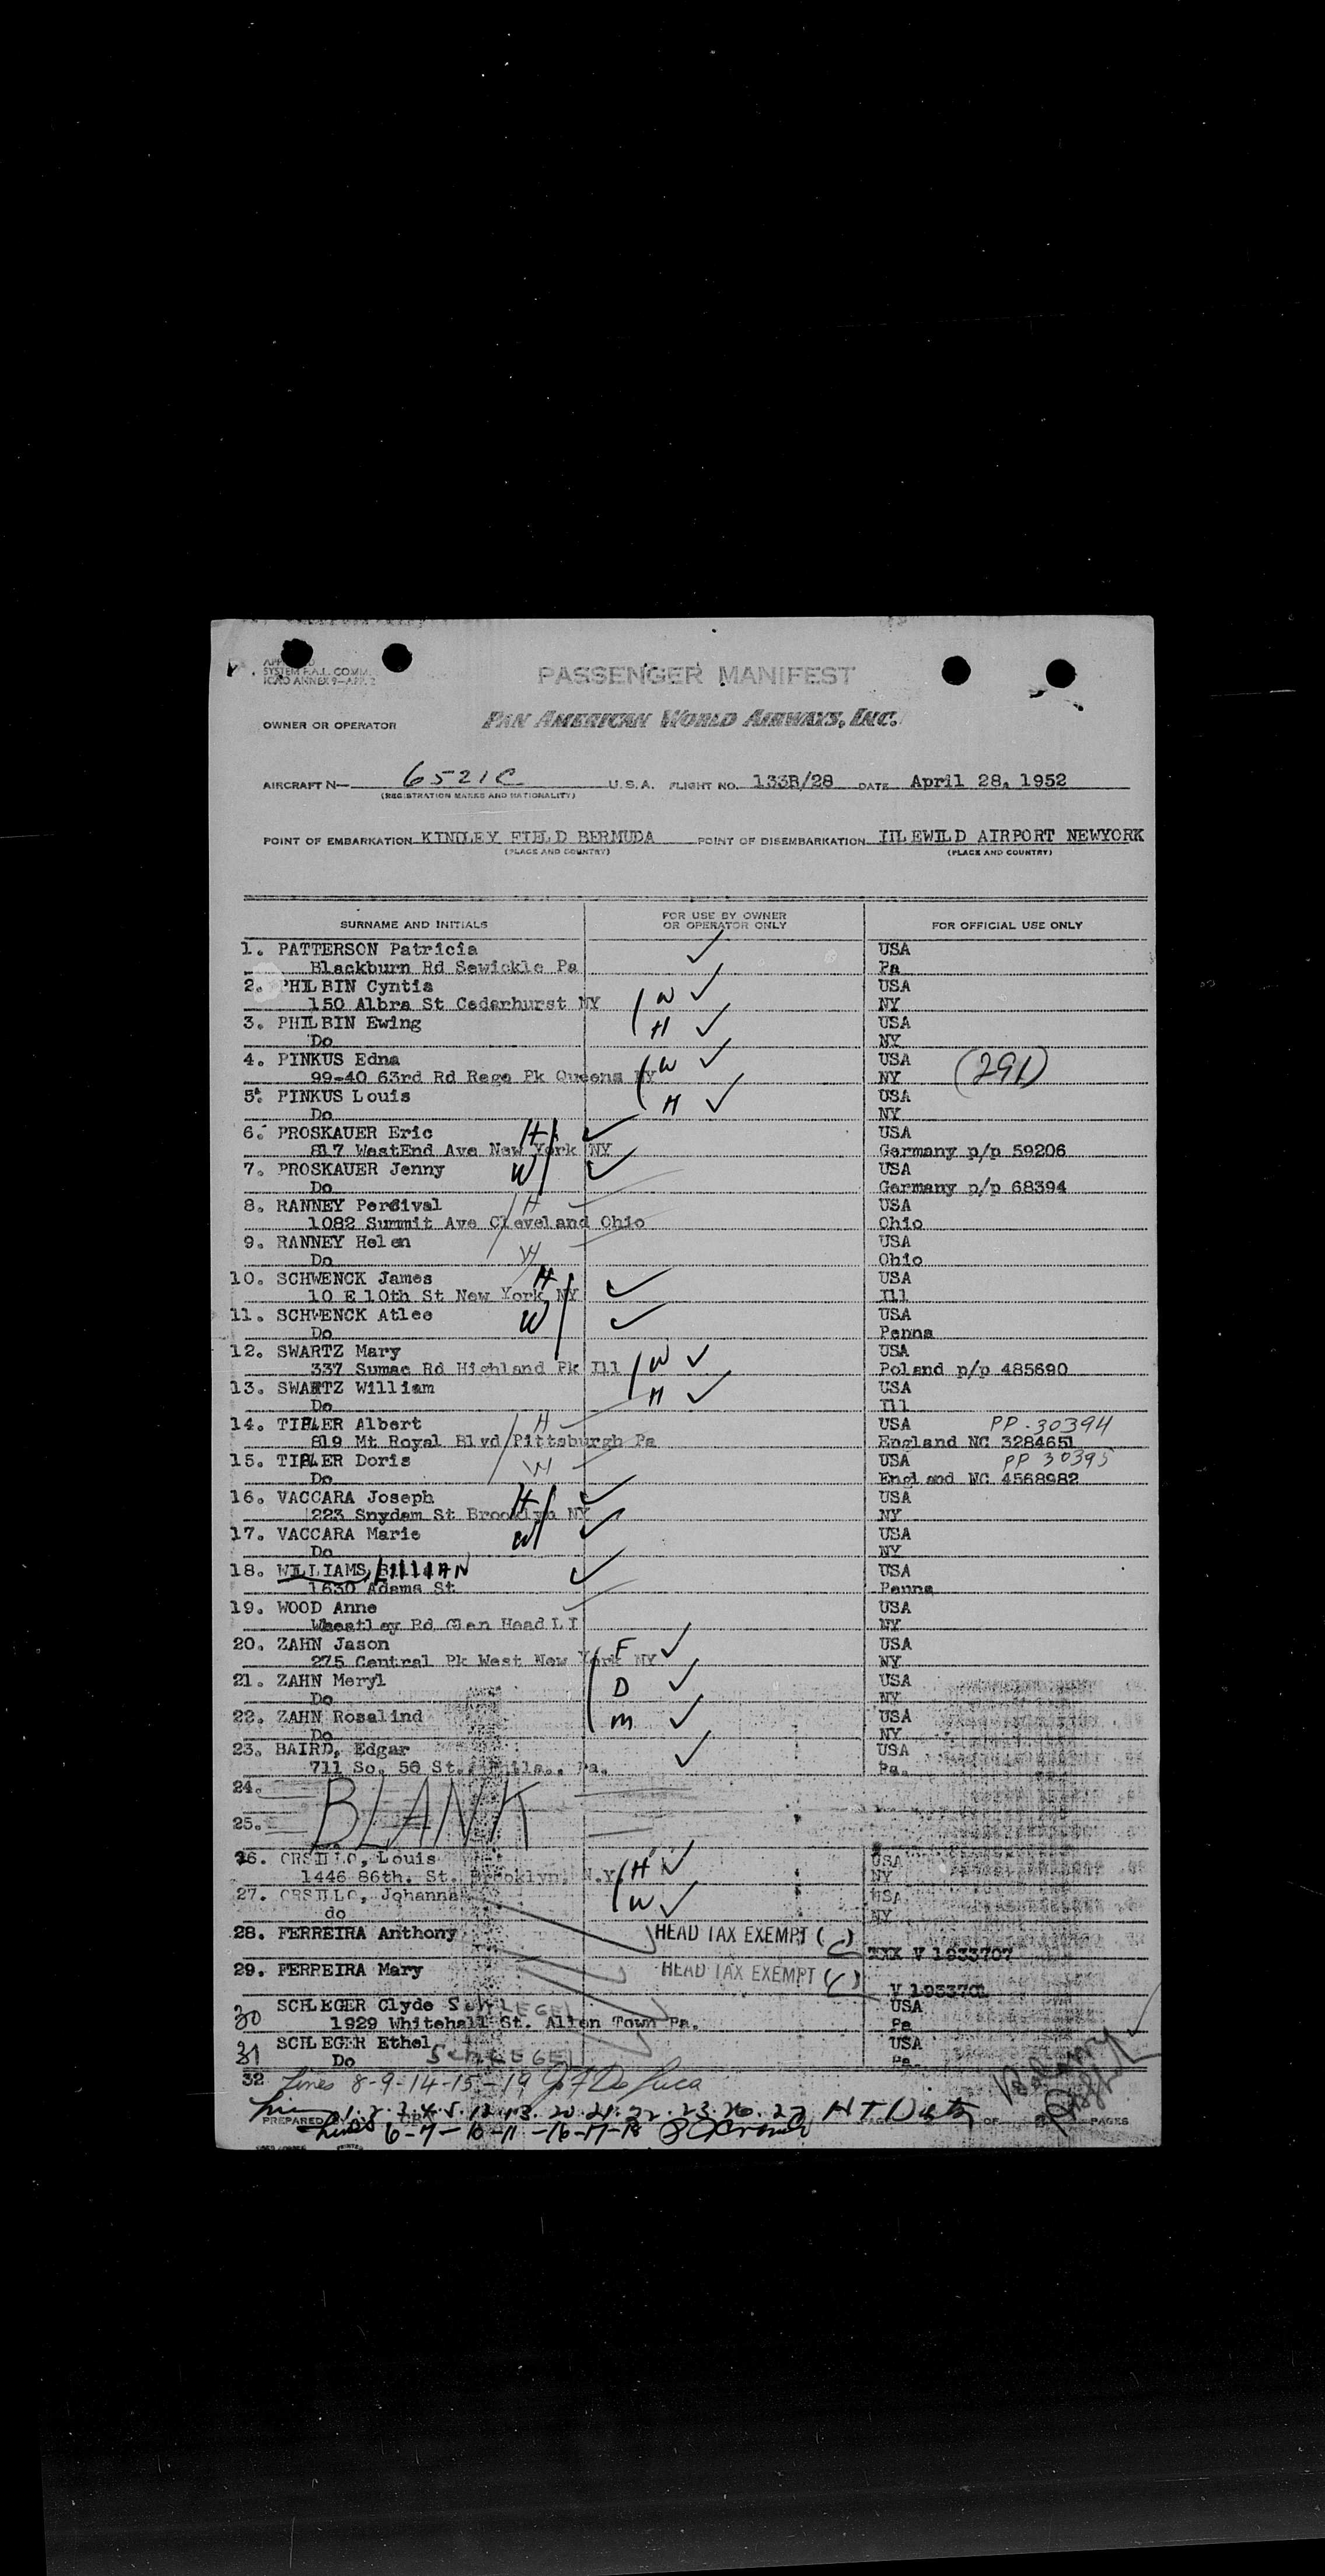 SYSTEM F.A.L. COMM.
ICAO ANNEX 9-APP. 2
PASSENGER MANIFEST
OWNER OR OPERATOR PAN AMERICAN WORLD AIRWAYS, INC.
AIRCRAFT N- 6521C U.S.A. FLIGHT NO. 133B/28 DATE April 28, 1952
(REGISTRATION MARKS AND NATIONALITY)
POINT OF EMBARKATION KINDLEY FIELD BERMUDA POINT OF DISEMBARKATION IILEWILD AIRPORT NEWYORK
(PLACE AND COUNTRY) (PLACE AND COUNTRY)
SURNAME AND INITIALS FOR USE BY OWNER OR OPERATOR ONLY FOR OFFICIAL USE ONLY
1. PATTERSON Patricia ✓ USA
Blackburn Rd Sewickle Pa Pa
2. PHILBIN Cyntia W ✓ USA
150 Albra St Cedarhurst NY NY
3. PHILBIN Ewing H ✓ USA
Do NY
4. PINKUS Edna W ✓ USA (291)
99-40 63rd Rd Rego Pk Queens NY NY
5. PINKUS Louis H ✓ USA
Do NY
6. PROSKAUER Eric H ✓ USA
817 WestEnd Ave New York NY Germany p/p 59206
7. PROSKAUER Jenny W ✓ USA
Do Germany p/p 68394
8. RANNEY Percival H USA
1082 Summit Ave Cleveland Ohio Ohio
9. RANNEY Helen W USA
Do Ohio
10. SCHWENCK James H ✓ USA
10 E 10th St New York NY Ill
11. SCHWENCK Atlee W ✓ USA
Do Penna
12. SWARTZ Mary W ✓ USA
337 Sumac Rd Highland Pk Ill Poland p/p 485690
13. SWARTZ William H ✓ USA
Do Ill
14. TIPLER Albert H USA PP.30394
819 Mt Royal Blvd Pittsburgh Pa England NC 3284651
15. TIPLER Doris W USA PP 30395
Do England NC 4568982
16. VACCARA Joseph H ✓ USA
223 Snydam St Brooklyn NY NY
17. VACCARA Marie W ✓ USA
Do NY
18. WILLIAMS, LILLIAN ✓ USA
1630 Adams St Penna
19. WOOD Anne USA
Wheatley Rd Glen Head LI NY
20. ZAHN Jason F ✓ USA
275 Central Pk West New York NY NY
21. ZAHN Meryl D ✓ USA
Do NY
22. ZAHN Rosalind M ✓ USA
Do NY
23. BAIRD, Edgar ✓ USA
711 So. 56 St. Phila., Pa. Pa.
24. BLANK
25.
26. ORSILLO, Louis H ✓ USA
1446 86th. St. Brooklyn, N.Y. NY
27. ORSILLO, Johanna W ✓ USA
do NY
28. FERREIRA Anthony HEAD TAX EXEMPT ( )
XXX V 1933707
29. FERREIRA Mary HEAD TAX EXEMPT ( )
30 SCHLEGER Clyde SCHLEGEL USA
1929 Whitehall St. Allen Town Pa. Pa
31 SCHLEGER Ethel USA
Do SCHLEGEL Pa.
32 Lines 8-9-14-15-19 J F De Luca
1.2.3.4.5.12.13.20.21.22.23.26.27
PREPARED OF PAGES
Lines 6-7-10-11-16-17-18